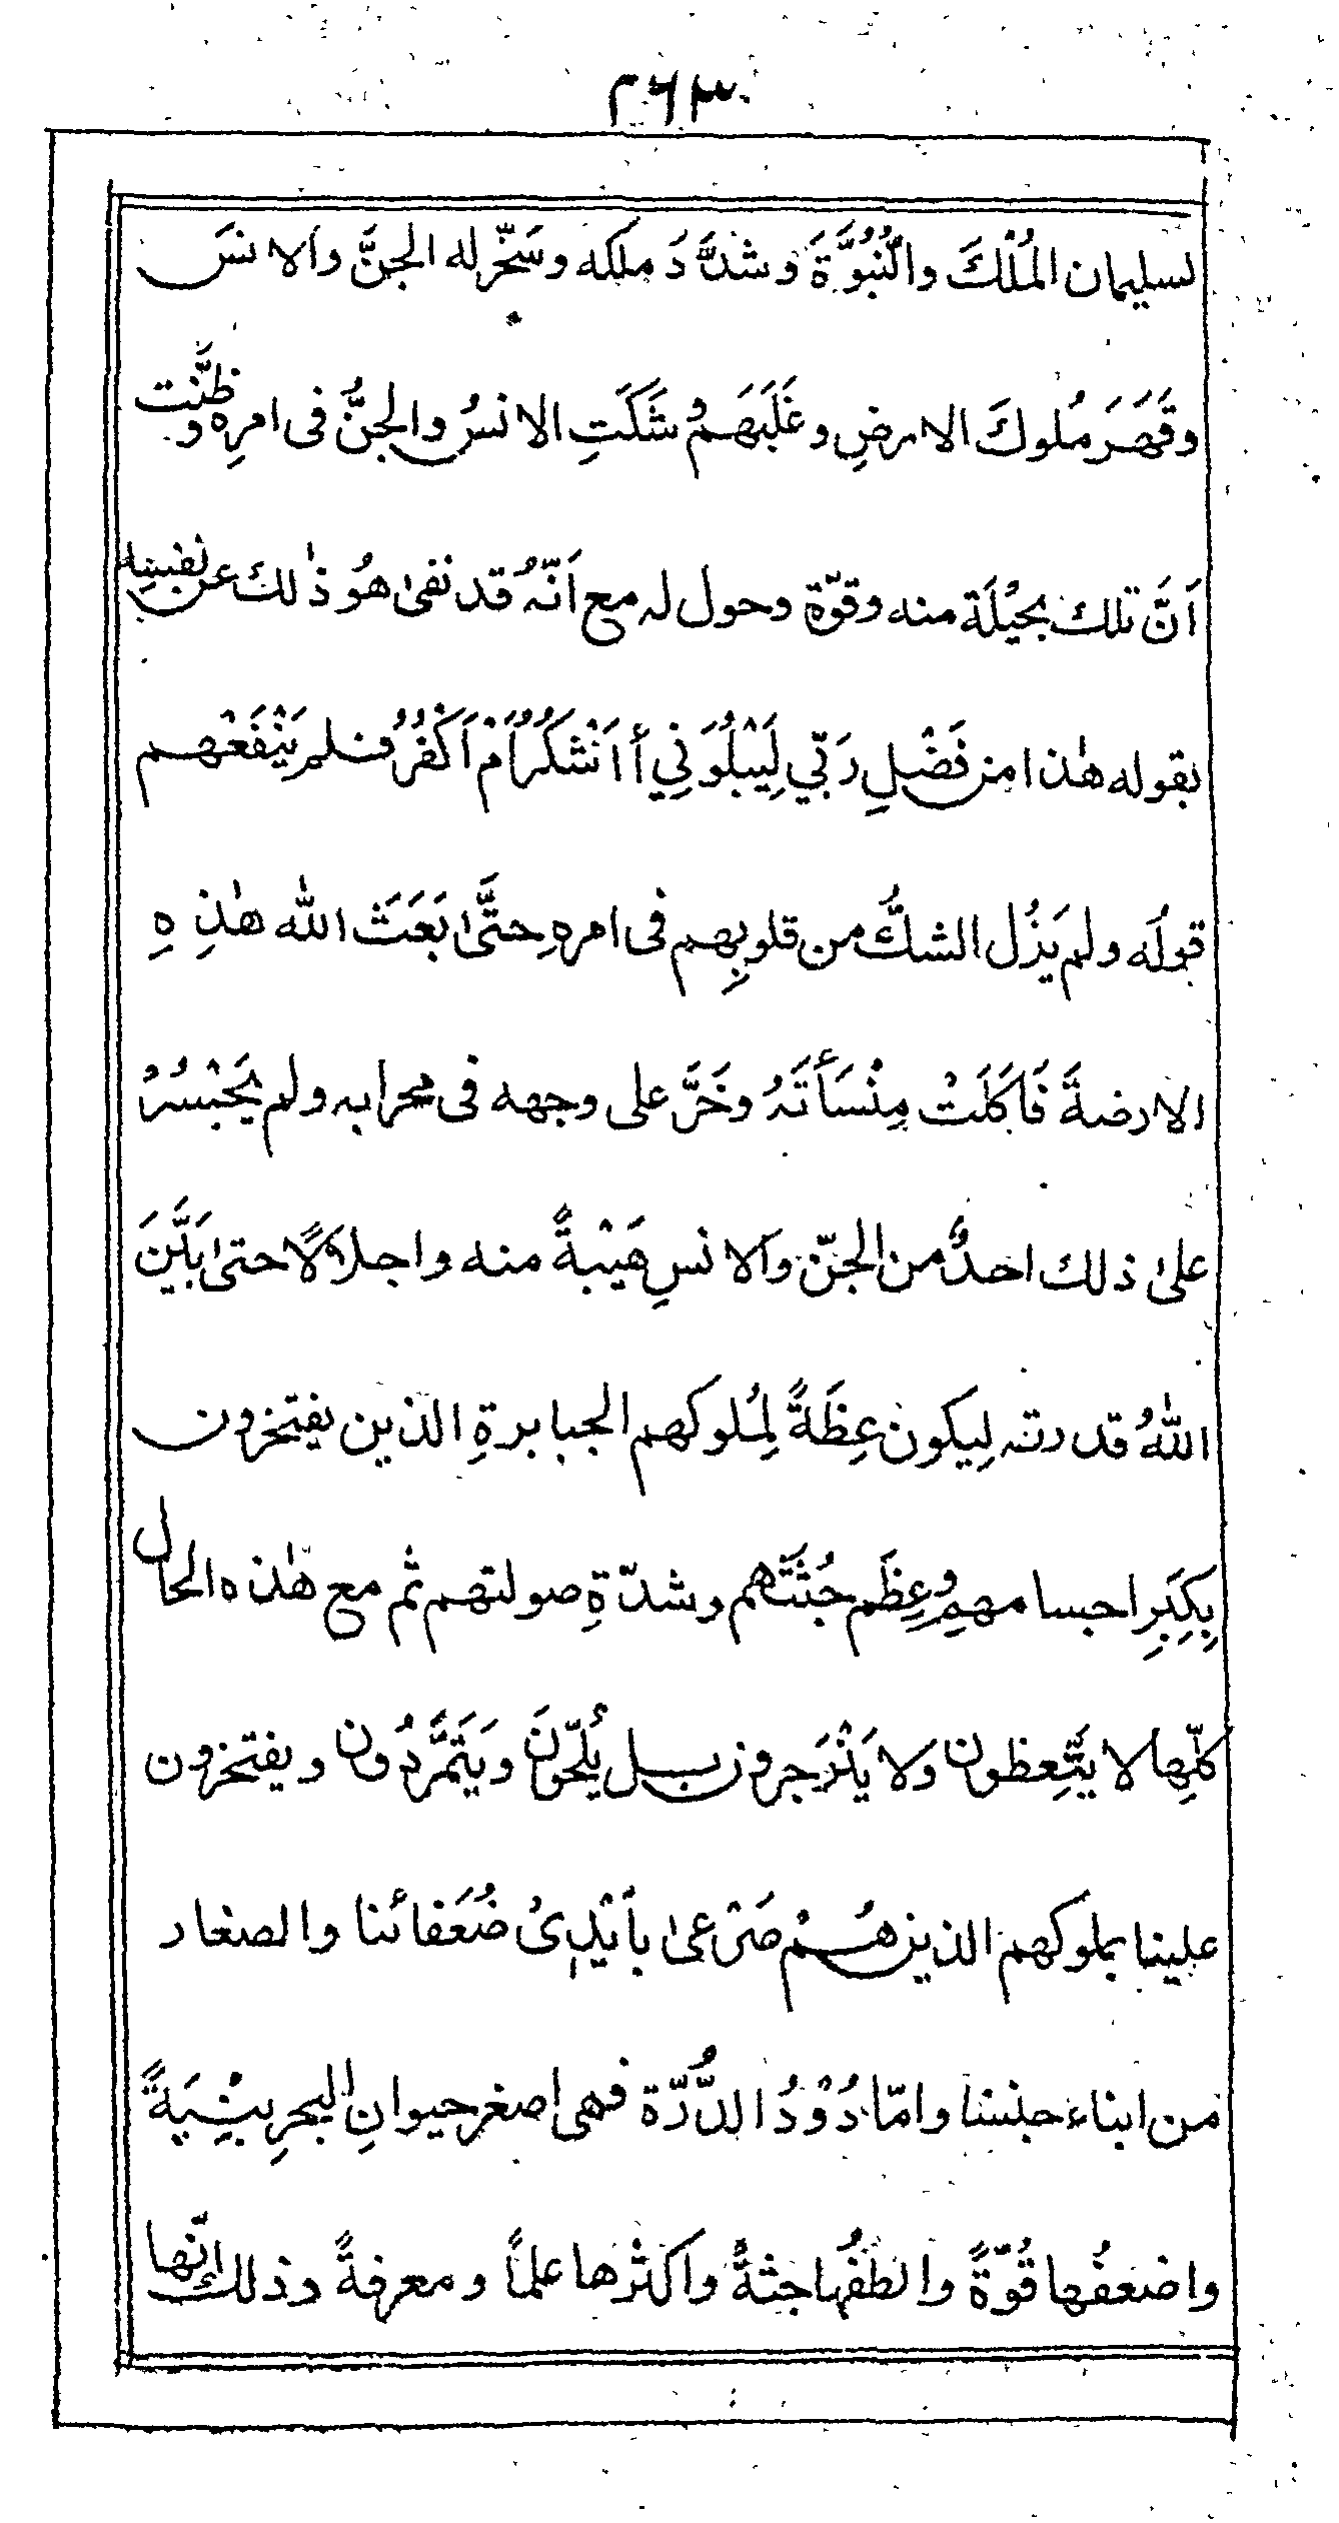 ٢٦٣
لسليمان المُلْكَ والنُّبُوَّةَ وشدَّدَ ملكه وسَخّر له الجنَّ والانسَ
وقَهَرَ مُلوكَ الارضِ وغَلَبَهَمْ وشَكَتِ الانسُ والجنُّ فى امرِه وظنَّت
اَنَّ تلك بحيْلَة منه وقوّة وحول له مع اَنّهُ قد نفىٰ هُو ذٰلك عن نفسِه
بقوله هٰذا من فَضْلِ رَبّي لِيَبْلُوَنِي أَاَشْكُرُ اَمْ اَكْفُرُ فلم يَنْفَعْهم
قولُه ولم يَزُل الشكُّ من قلوبِهم فى امرهِ حتَّىٰ بَعَثَ الله هٰذِهِ
الارضةَ فَاَكَلَتْ مِنْسَأَتَهُ وخَرَّ على وجهه فى محرابه ولم يَجْسُرْ
علىٰ ذلك احدٌ من الجنّ والانسِ هَيْبةً منه واجلالًا حتىٰ بَيَّنَ
اللهُ قدرته لِيكون عِظَةً لِمُلوكهم الجبابرةِ الذين يفتخرون
بِكِبَرِ اجسامهِم وعِظَم جُثَتَهم وشدّةِ صولتهم ثم مع هٰذه الحال
كلِّها لا يتَّعِظون ولا يَنْزَجرون بل يُلحّونَ ويَتَمَّردُون ويفتخرون
علينا بملوكهم الذين هُمْ صَرْعىٰ باَيْدِىُ ضُعَفائنا والصغار
من ابناء جنسنا وامّا دُوْدُ الدُّرّة فهى اصغر حيوانِ البحرِ بِنْيَةً
واضعفُها قُوّةً والطفُها جثةً واكثرُها علمًا ومعرفةً وذلك انّها